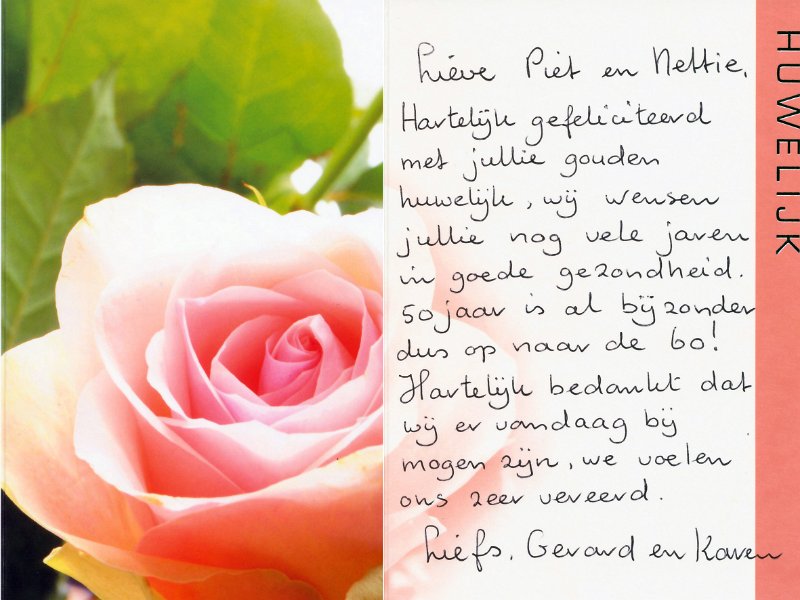 Lieve Piet en Nettie,
Hartelijk gefeliciteerd
met jullie gouden
huwelijk, wij wensen
jullie nog vele jaren
in goede gezondheid.
50 jaar is al bijzonder
dus op naar de 60!
Hartelijk bedankt dat
wij er vandaag bij
mogen zijn, we voelen
ons zeer vereerd.
Liefs, Gerard en Karen
HUWELIJK